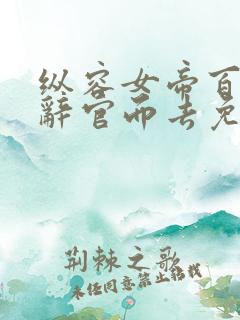 纵容女帝百
辞官而去免
荆棘之歌
未经同意禁止转载